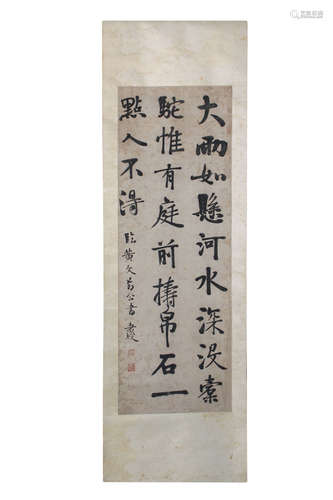 大雨如懸河水深沒橐
駝惟有庭前擣帛石一
點入不得
臨黃文節公書